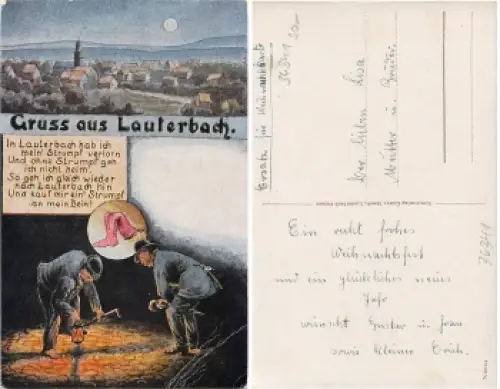 Gruss aus Lauterbach.
In Lauterbach hab ich
mein' Strumpf verlorn
Und ohne Strumpf geh
ich nicht heim.
So geh ich gleich wieder
nach Lauterbach hin
Und kauf mir ein' Strumpf
an mein Bein!
Ersatz für Weihnachtskarte
Der lieben Lisa
Mutter u. Bruder
Ein recht frohes
Weihnachtsfest
und ein glückliches neues
Jahr
wünscht Gustav u. Frau
sowie kleiner Erich.